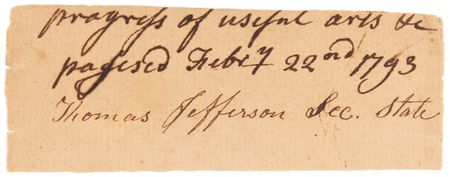 progress of useful arts &c
pass'd Feb'ry 22nd 1793
Thomas Jefferson Sec. State